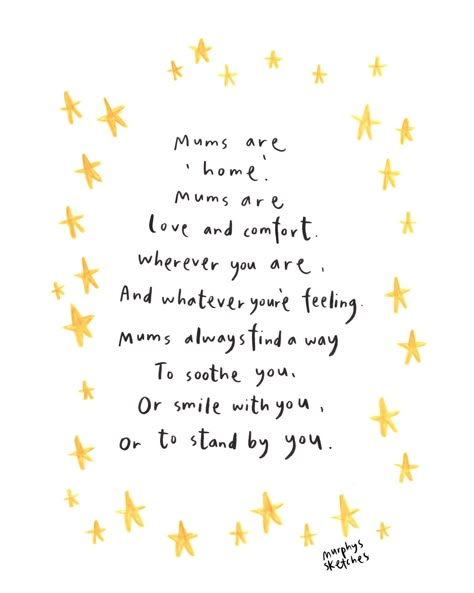 Mums are
'home'.
Mums are
love and comfort.
wherever you are,
And whatever you're feeling.
Mums always find a way
To soothe you,
Or smile with you,
Or to stand by you.
murphys
sketches